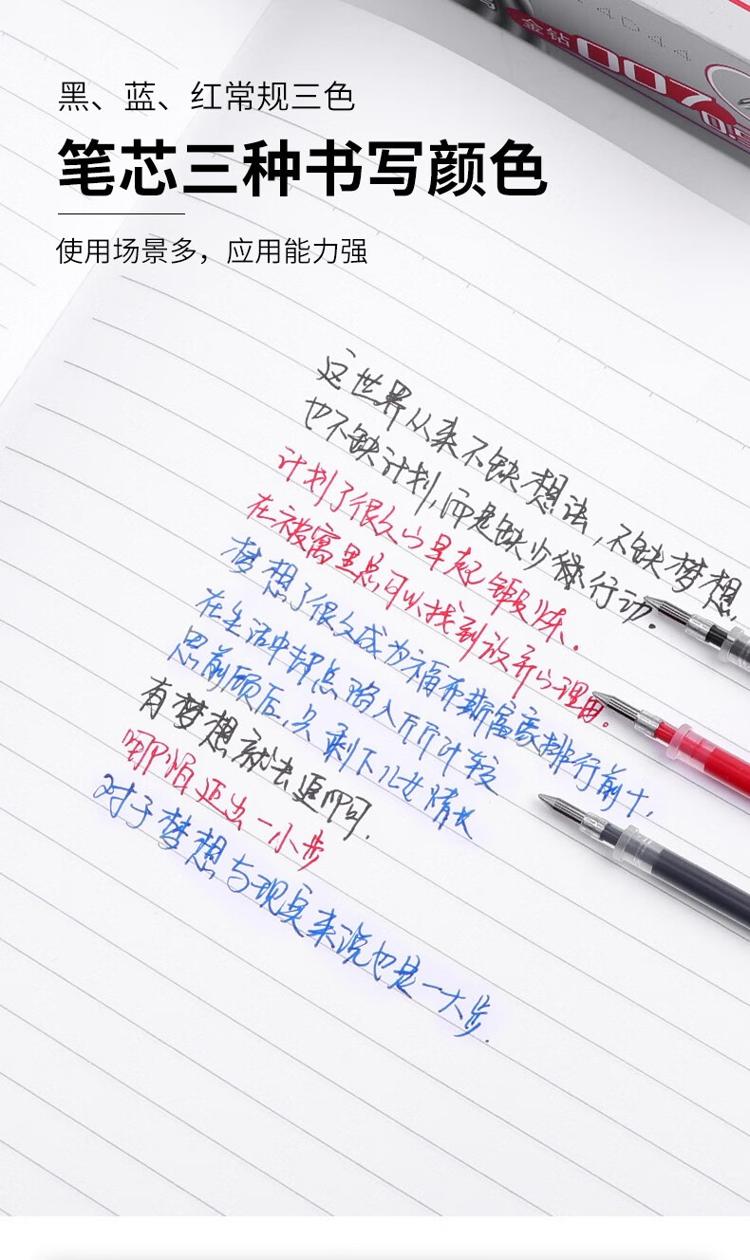 黑、蓝、红常规三色
笔芯三种书写颜色
使用场景多，应用能力强
金钻 007
这世界从来不缺想法，不缺梦想，
也不缺计划，而是缺少行动。
计划了很久的早起锻炼，
在被窝里总可以找到放弃的理由。
梦想了很久成为福布斯富豪排行前十，
在生活中却总陷入斤斤计较
思前顾后，只剩下儿女情长
有梦想就去追即可．
哪怕迈出一小步
对于梦想与现实来说也是一大步．